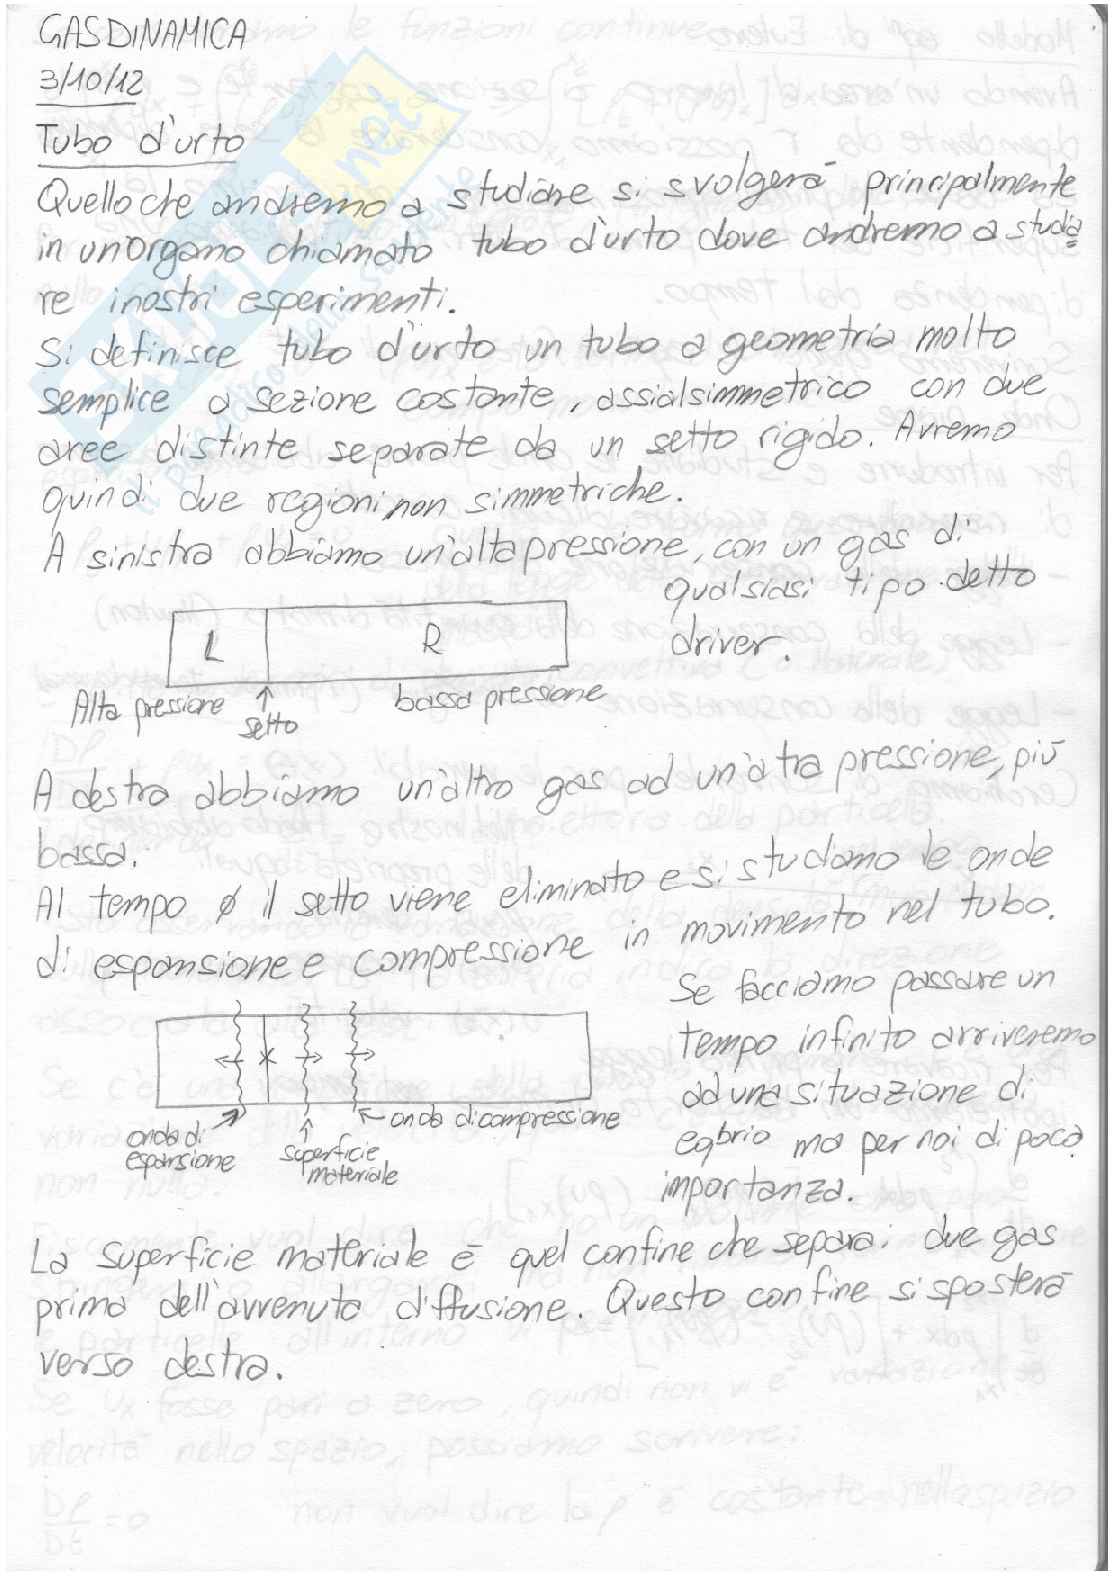 GASDINAMICA
3/10/12
Tubo d'urto
Quello che andremo a studiare si svolgerà principalmente
in un'organo chiamato tubo d'urto dove andremo a studia
re i nostri esperimenti.
Si definisce tubo d'urto un tubo a geometria molto
semplice a sezione costante, assialsimmetrico con due
aree distinte separate da un setto rigido. Avremo
quindi due regioni non simmetriche.
A sinistra abbiamo un'alta pressione, con un gas di
qualsiasi tipo detto
driver.
L R
Alta pressione
setto
bassa pressione
A destra abbiamo un'altro gas ad un'atra pressione, più
bassa.
Al tempo ø il setto viene eliminato e si studiano le onde
di espansione e compressione in movimento nel tubo.
Se facciamo passare un
tempo infinito arriveremo
ad una situazione di
eqbrio ma per noi di poca
importanza.
onda di
espansione
superficie
materiale
onda di compressione
La superficie materiale è quel confine che separa i due gas
prima dell'avvenuta diffusione. Questo confine si sposterà
verso destra.